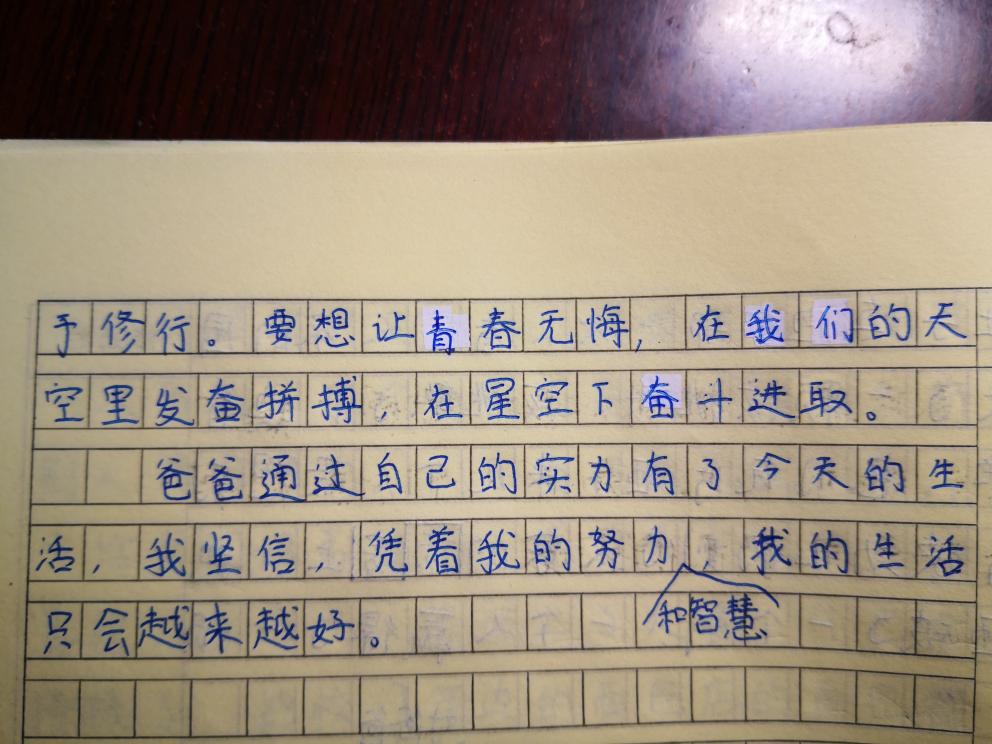 于修行。要想让青春无悔,在我们的天
空里发奋拼搏,在星空下奋斗进取。
爸爸通过自己的实力有了今天的生
活,我坚信,凭着我的努力,我的生活
和智慧
只会越来越好。